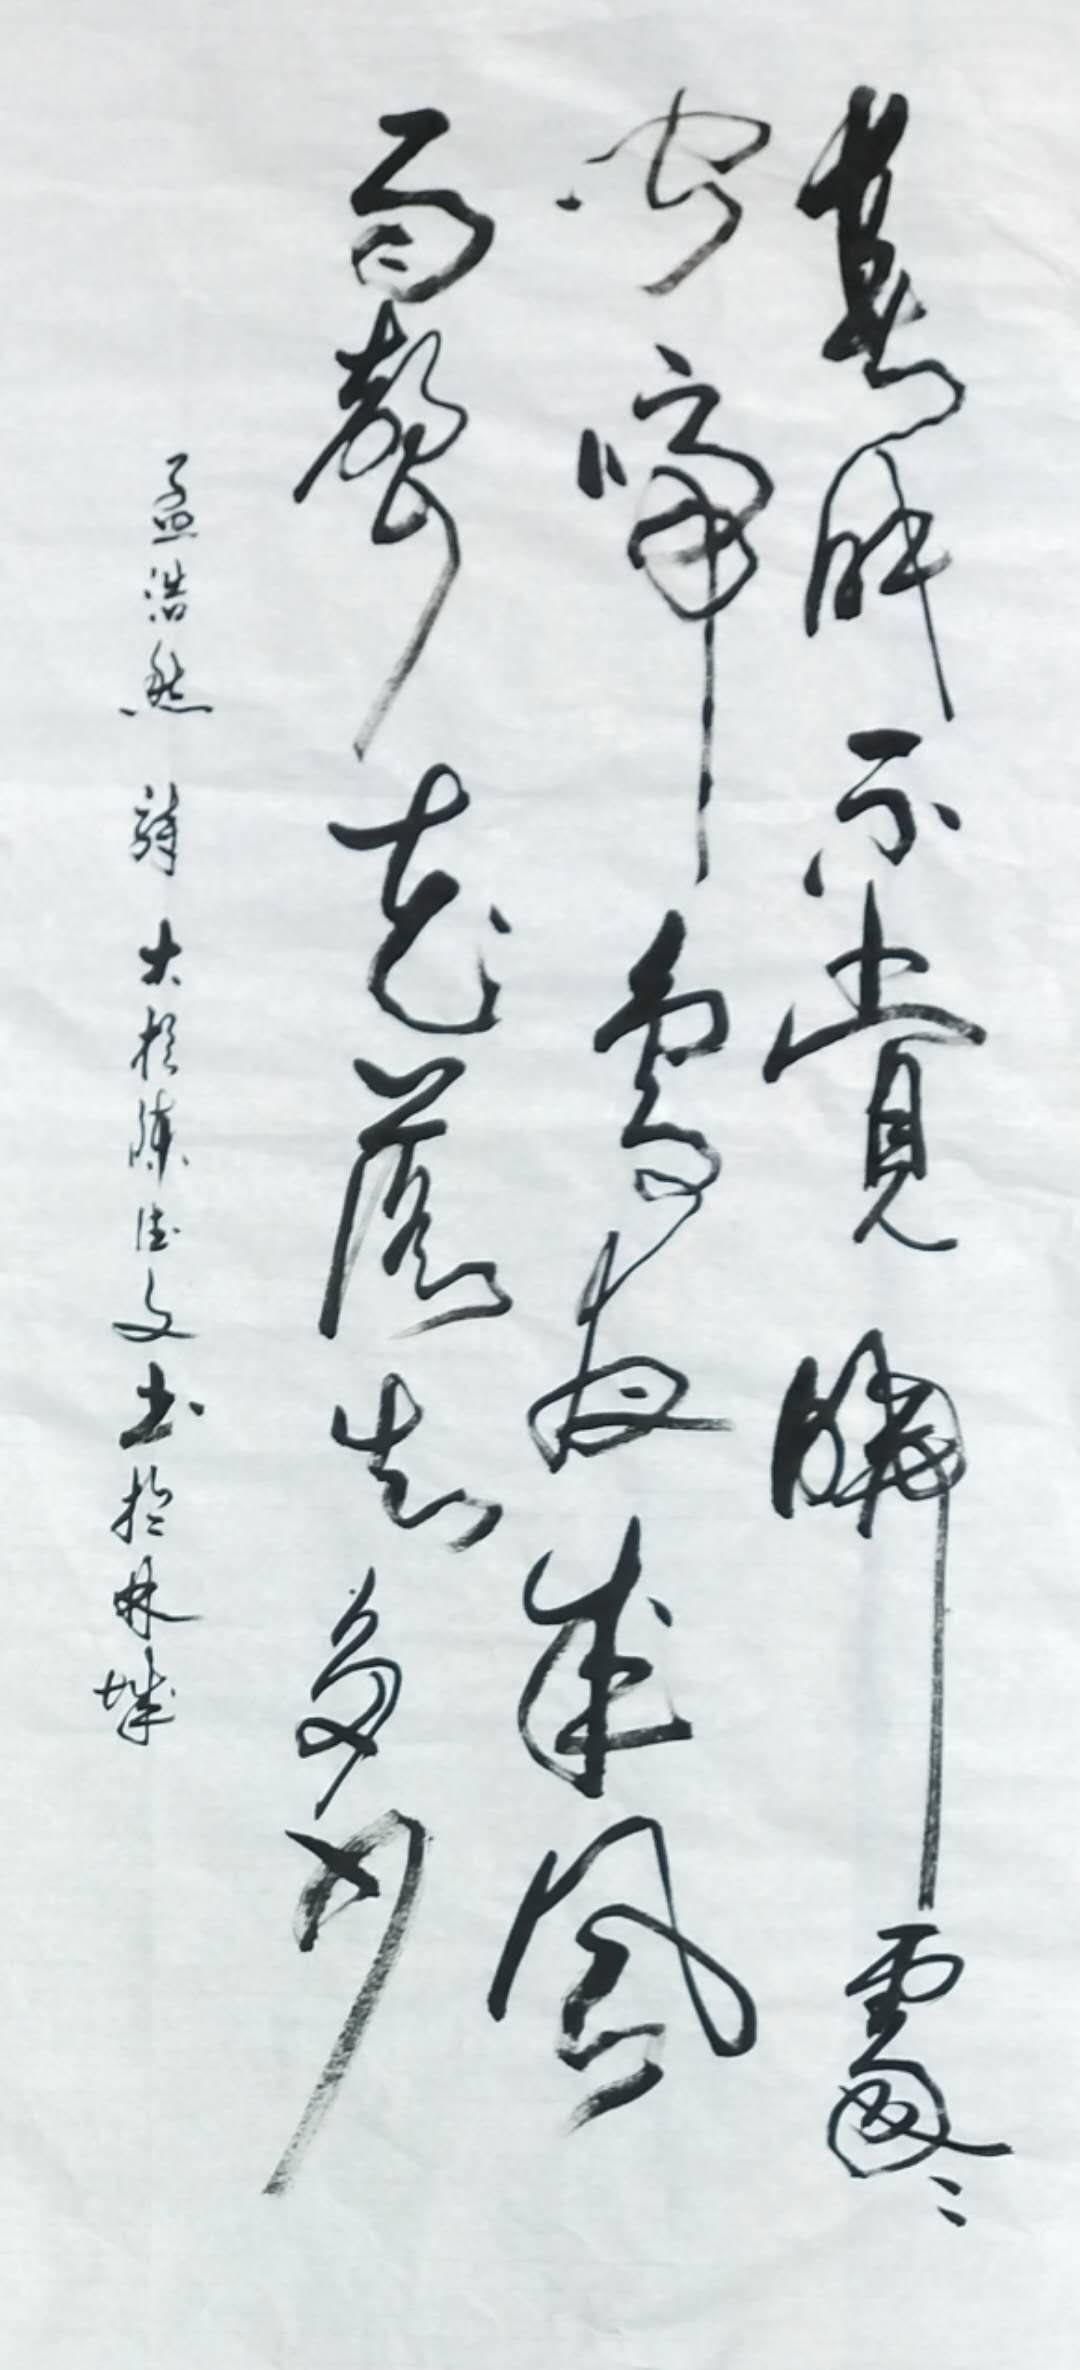 春眠不覺曉處〻
聞啼鳥夜来風
雨聲花落知多少
孟浩然 詩 大 陳德文书於林城